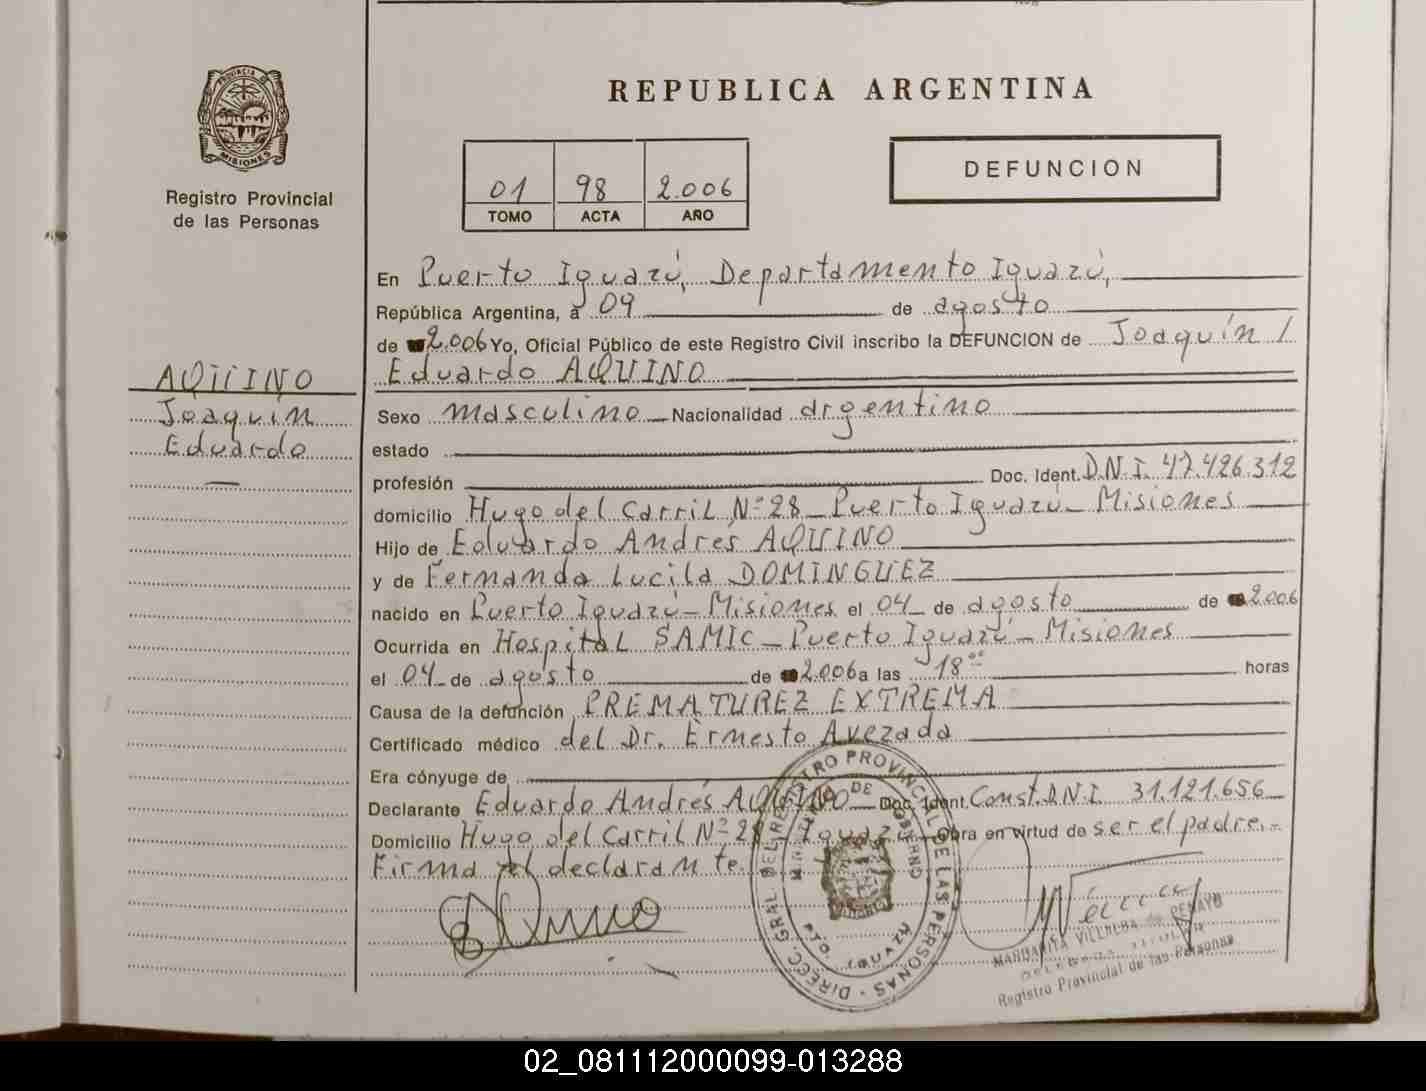 PROVINCIA DE
MISIONES
Registro Provincial
de las Personas
AQUINO
Joaquín
Eduardo
REPUBLICA ARGENTINA
01 98 2.006
TOMO ACTA AÑO
DEFUNCION
En Puerto Iguazú, Departamento Iguazú,
República Argentina, a 09 de agosto
de 2.006 Yo, Oficial Público de este Registro Civil inscribo la DEFUNCION de Joaquín /
Eduardo AQUINO
Sexo masculino Nacionalidad argentino
estado
profesión Doc. Ident. D.N.I. 47.426.312
domicilio Hugo del Carril Nº 28 - Puerto Iguazú - Misiones
Hijo de Eduardo Andrés AQUINO
y de Fernanda Lucila DOMINGUEZ
nacido en Puerto Iguazú - Misiones el 04 de agosto de 2006
Ocurrida en Hospital SAMIC - Puerto Iguazú - Misiones
el 04 de agosto de 2.006 a las 18ºº horas
Causa de la defunción PREMATUREZ EXTREMA
Certificado médico del Dr. Ernesto Avezada
Era cónyuge de
Declarante Eduardo Andrés AQUINO Doc. Ident. Const. D.N.I. 31.121.656
Domicilio Hugo del Carril Nº 28 - Iguazú - Obra en virtud de ser el padre.-
Firma el declarante.
DIRECC. GRAL DEL REGISTRO PROVINCIAL DE LAS PERSONAS
DE GOBIERNO
PTO. IGUAZU
MARGARITA VILLALBA de PENAYO
Registro Provincial de las Personas
02_081112000099-013288